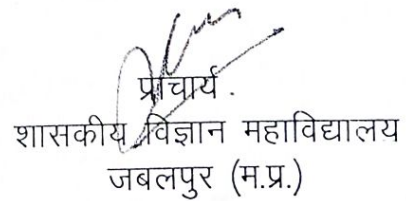 प्राचार्य .
शासकीय विज्ञान महाविद्यालय
जबलपुर (म.प्र.)